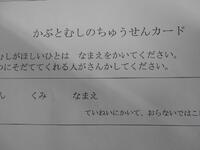 かぶとむしのちゅうせんカード
むしがほしいひとは なまえをかいてください。
つにそだててくれる人がさんかしてください。
ん くみ なまえ
ていねいにかいて、おらないではこ